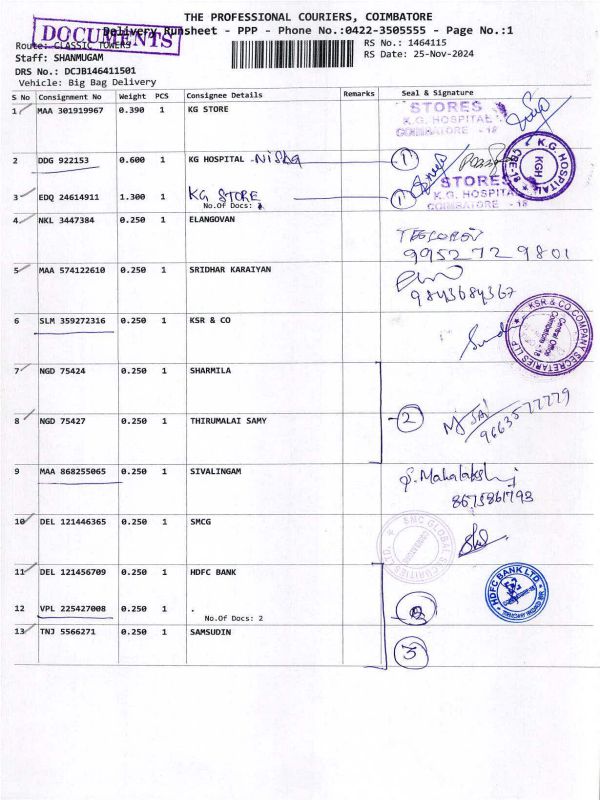 THE PROFESSIONAL COURIERS, COIMBATORE
Delivery Runsheet - PPP - Phone No.:0422-3505555 - Page No.:1
DOCUMENTS
Route: CLASSIC TOWERS
RS No.: 1464115
Staff: SHANMUGAM
RS Date: 25-Nov-2024
DRS No.: DCJB146411501
Vehicle: Big Bag Delivery
S No Consignment No Weight PCS Consignee Details Remarks Seal & Signature
1 MAA 301919967 0.390 1 KG STORE
STORES
K.G. HOSPITAL
COIMBATORE - 18
2 DDG 922153 0.600 1 KG HOSPITAL - Nisha 1
K.G. HOSPITAL
KGH
CBE-18
3 EDQ 24614911 1.300 1 KG STORE 1
No.Of Docs:
STORES
K.G. HOSPITAL
COIMBATORE - 18
4 NKL 3447384 0.250 1 ELANGOVAN
99527 29801
5 MAA 574122610 0.250 1 SRIDHAR KARAIYAN
9843684367
6 SLM 359272316 0.250 1 KSR & CO
KSR & CO COMPANY SECRETARIES LLP
Central Office
Coimbatore - 18
7 NGD 75424 0.250 1 SHARMILA
8 NGD 75427 0.250 1 THIRUMALAI SAMY 2
9 MAA 868255065 0.250 1 SIVALINGAM
S. Mahalakshmi
8675861793
10 DEL 121446365 0.250 1 SMCG
SMC GLOBAL SECURITIES LTD.
11 DEL 121456709 0.250 1 HDFC BANK
HDFC BANK LTD
12 VPL 225427008 0.250 1 .
No.Of Docs: 2
13 TNJ 5566271 0.250 1 SAMSUDIN 3